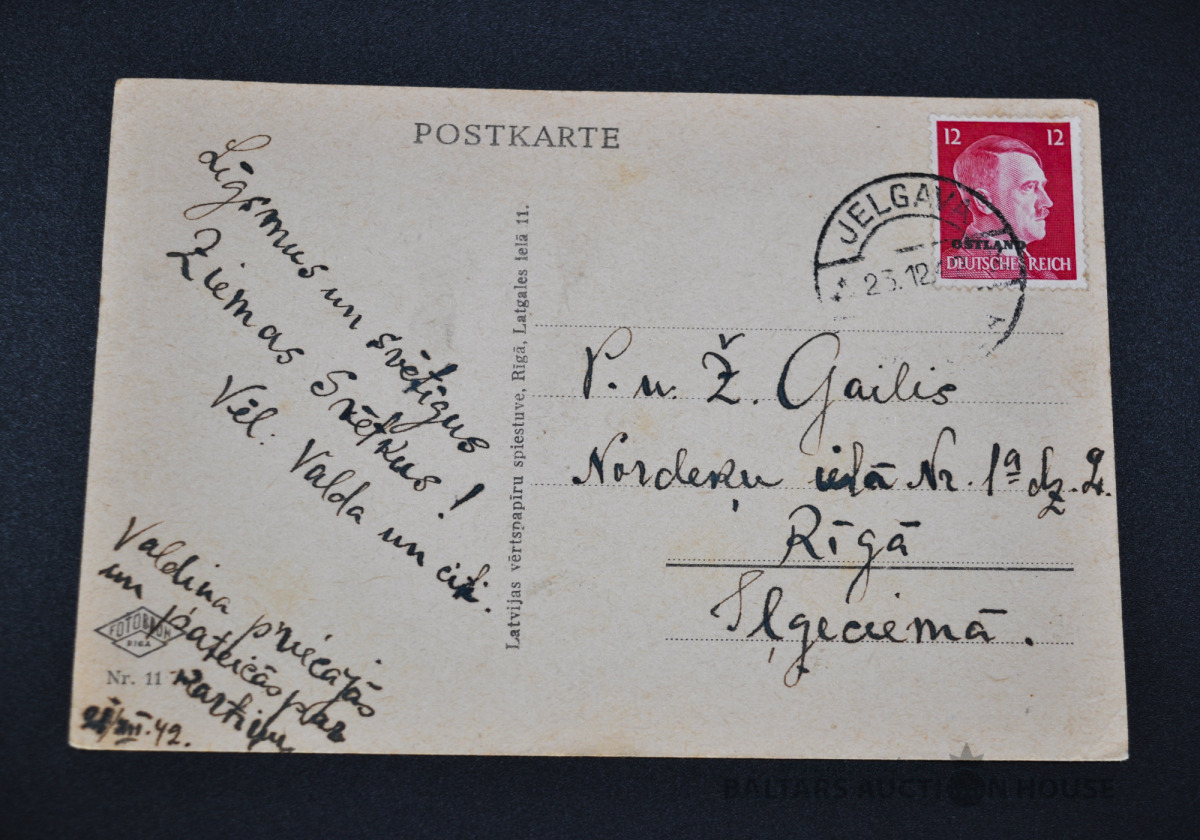 POSTKARTE
Līgsmus un svētīgus
Ziemas Svētkus!
Vēl. Valda un citi.
Valdiņa priecājās
un pateicās par
Kartiņu
XII.42.
FOTOBROM
RIGA
Nr. 11
Latvijas vērtspapīru spiestuve, Rīgā, Latgales ielā 11.
12 12
OSTLAND
DEUTSCHES REICH
JELGAVA
12
A
P. u. Ž. Gailis
Nordeķu ielā Nr. 1a dz. 2.
Rīgā
Iļģeciemā.
BALTARS AUCTION HOUSE